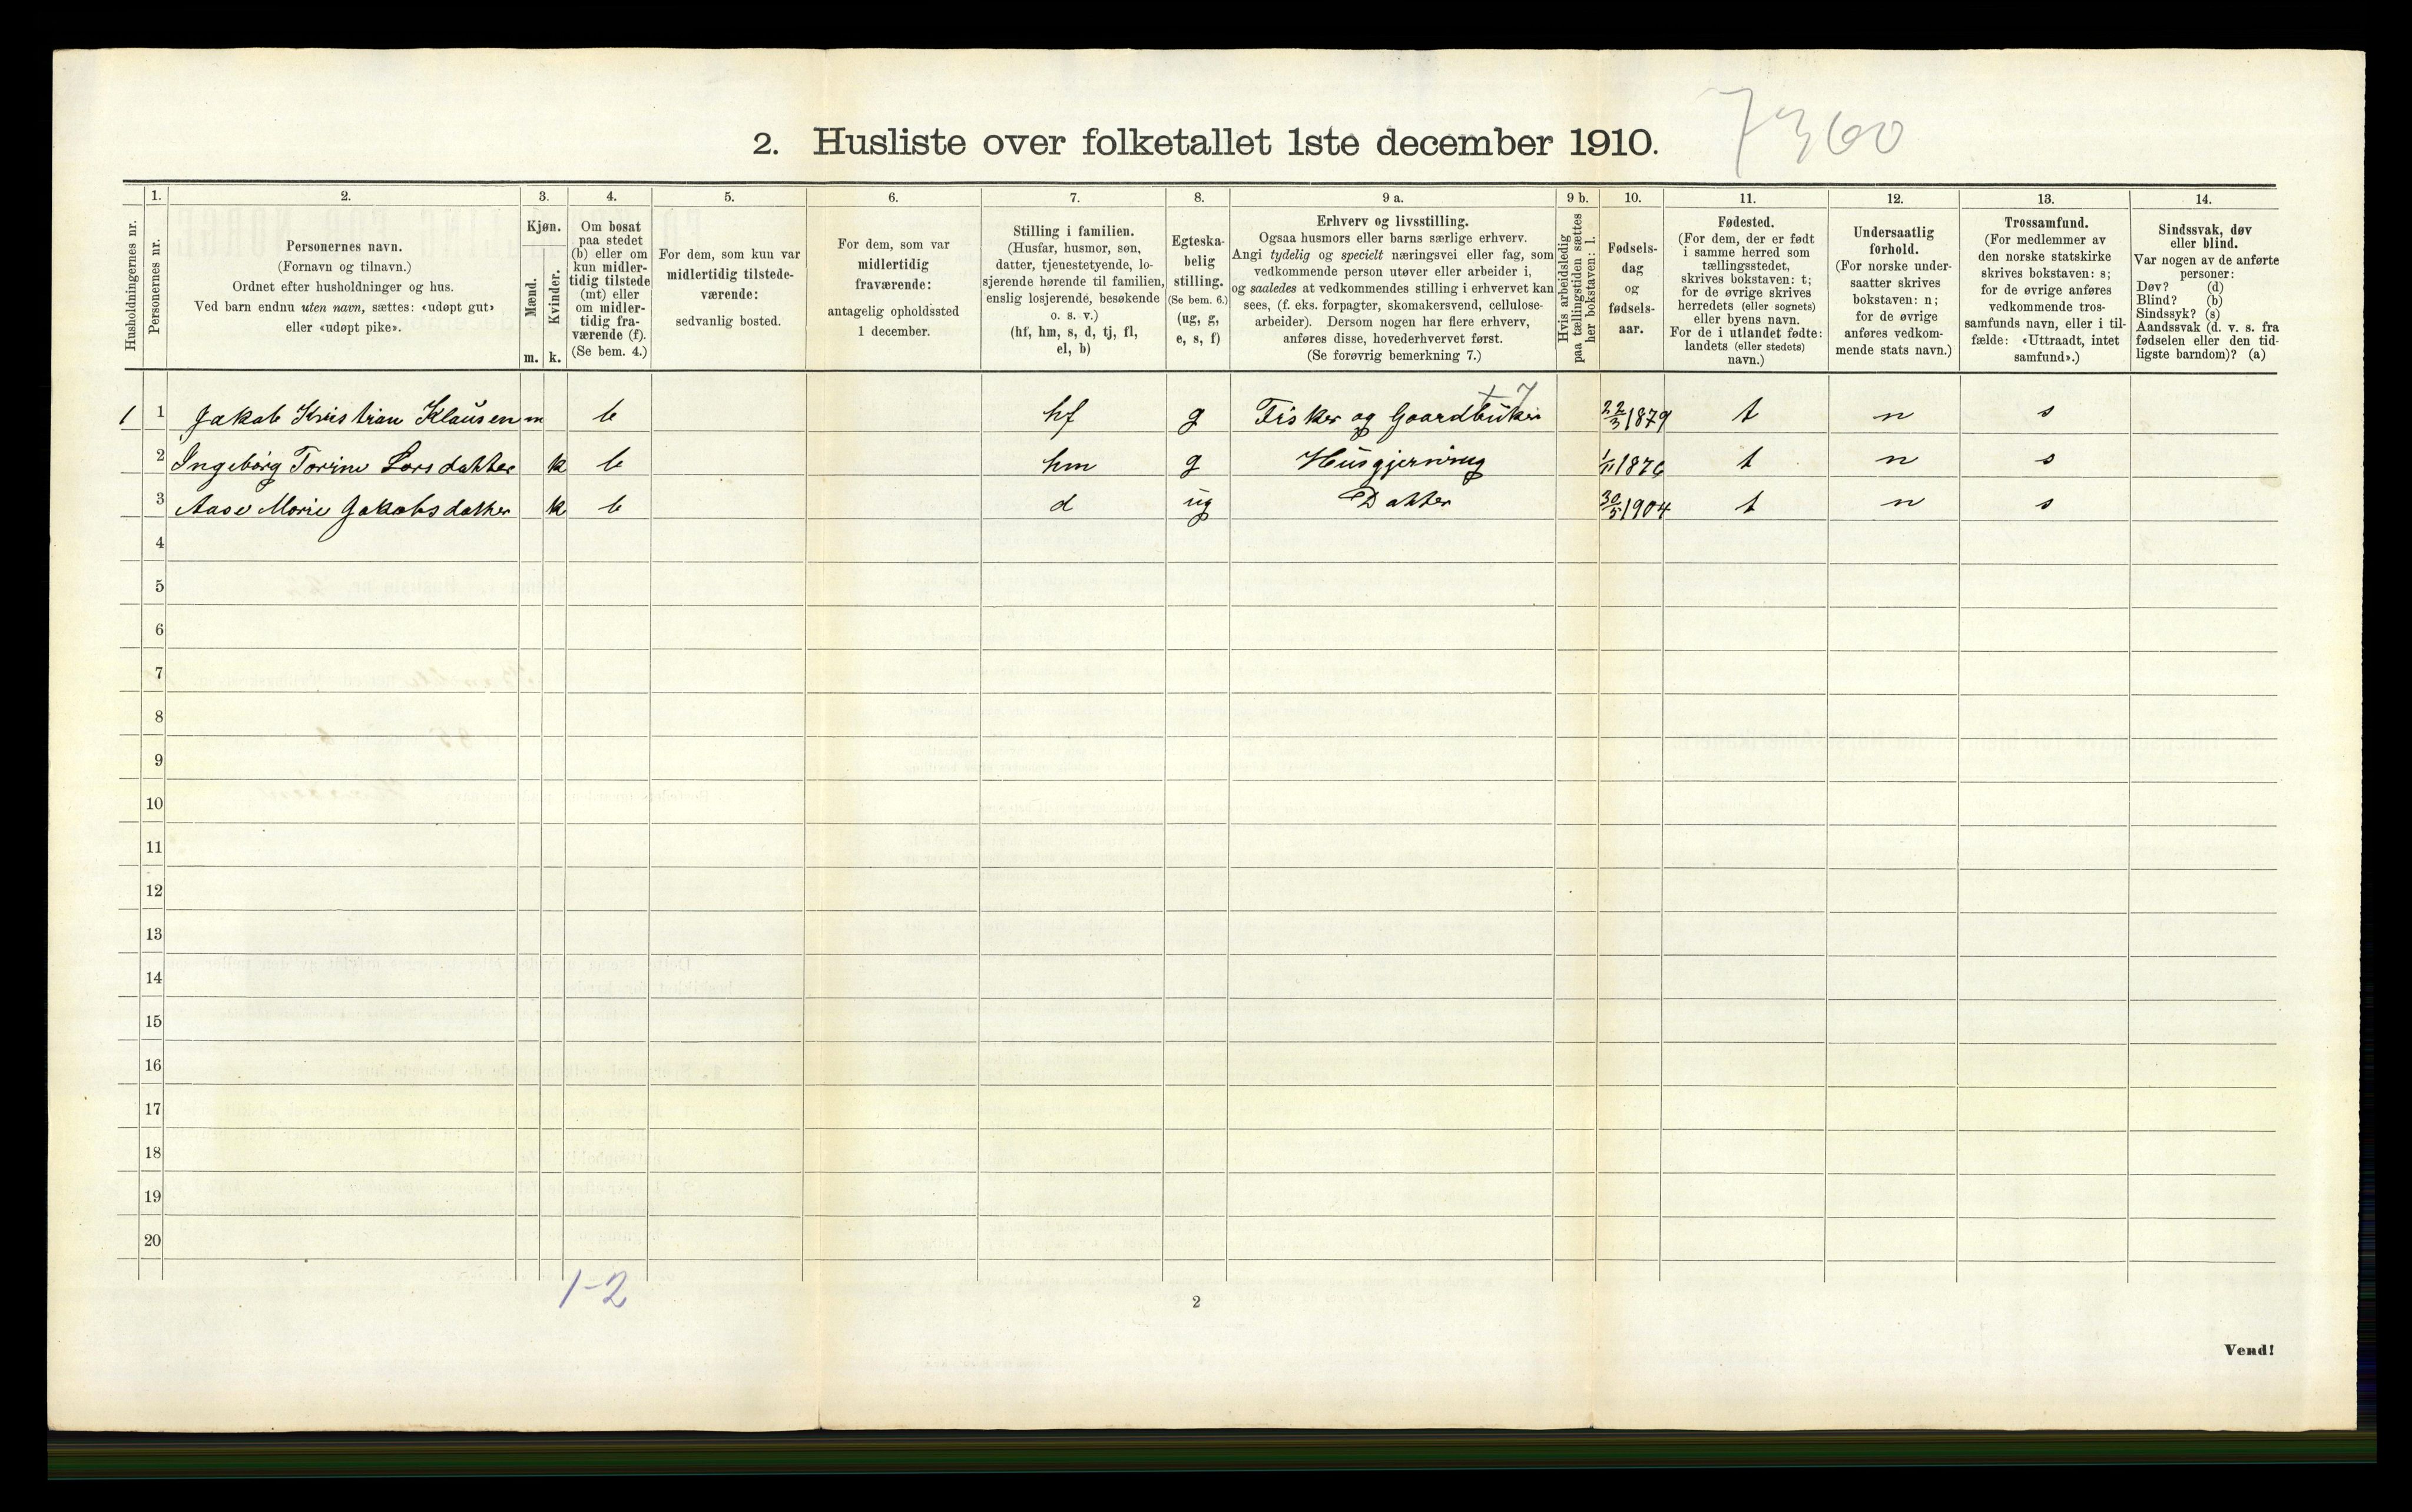 7360
2. Husliste over folketallet 1ste december 1910.
1. 2. 3. 4. 5. 6. 7. 8. 9 a. 9 b. 10. 11. 12. 13. 14.
Husholdningernes nr.
Personernes nr.
Personernes navn.
(Fornavn og tilnavn.)
Ordnet efter husholdninger og hus.
Ved barn endnu uten navn, sættes: «udøpt gut»
eller «udøpt pike».
Kjøn.
Mænd.
Kvinder.
m. k.
Om bosat
paa stedet
(b) eller om
kun midler-
tidig tilstede
(mt) eller
om midler-
tidig fra-
værende (f).
(Se bem. 4.)
For dem, som kun var
midlertidig tilstede-
værende:
sedvanlig bosted.
For dem, som var
midlertidig
fraværende:
antagelig opholdssted
1 december.
Stilling i familien.
(Husfar, husmor, søn,
datter, tjenestetyende, lo-
sjerende hørende til familien,
enslig losjerende, besøkende
o. s. v.)
(hf, hm, s, d, tj, fl,
el, b)
Egteska-
belig
stilling.
(Se bem. 6.)
(ug, g,
e, s, f)
Erhverv og livsstilling.
Ogsaa husmors eller barns særlige erhverv.
Angi tydelig og specielt næringsvei eller fag, som
vedkommende person utøver eller arbeider i,
og saaledes at vedkommendes stilling i erhvervet kan
sees, (f. eks. forpagter, skomakersvend, cellulose-
arbeider). Dersom nogen har flere erhverv,
anføres disse, hovederhvervet først.
(Se forøvrig bemerkning 7.)
Hvis arbeidsledig
paa tællingstiden sættes
her bokstaven: l.
Fødsels-
dag
og
fødsels-
aar.
Fødested.
(For dem, der er født
i samme herred som
tællingsstedet,
skrives bokstaven: t;
for de øvrige skrives
herredets (eller sognets)
eller byens navn.
For de i utlandet fødte:
landets (eller stedets)
navn.)
Undersaatlig
forhold.
(For norske under-
saatter skrives
bokstaven: n;
for de øvrige
anføres vedkom-
mende stats navn.)
Trossamfund.
(For medlemmer av
den norske statskirke
skrives bokstaven: s;
for de øvrige anføres
vedkommende tros-
samfunds navn, eller i til-
fælde: «Uttraadt, intet
samfund».)
Sindssvak, døv
eller blind.
Var nogen av de anførte
personer:
Døv? (d)
Blind? (b)
Sindssyk? (s)
Aandssvak (d. v. s. fra
fødselen eller den tid-
ligste barndom)? (a)
+ 7
1 1 Jakob Kristian Klausen m b hf g Fisker og Gaardbruker 22/3 1879 t n s
2 Ingeborg Torine Larsdatter k b hm g Husgjerning 1/11 1876 t n s
3 Aase Marie Jakobsdatter k b d ug Datter 30/5 1904 t n s
4
5
6
7
8
9
10
11
12
13
14
15
16
17
18
19
20
1-2
2
Vend!